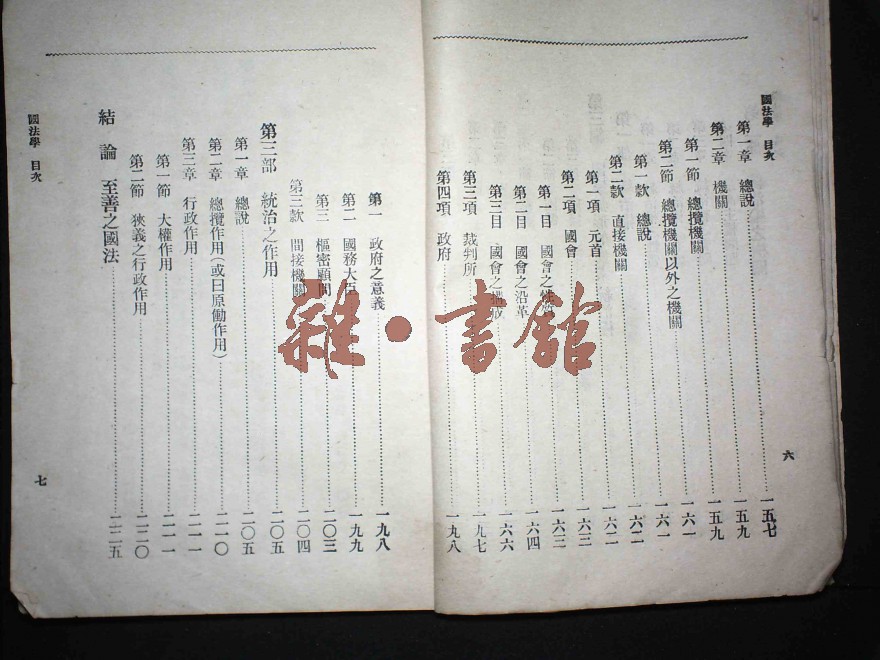 國法學 目次
第一章 總說……一五七
第二章 機關……一五九
第一節 總攬機關……一五九
第二節 總攬機關以外之機關……一六一
第一款 總說……一六一
第二款 直接機關……一六二
第一項 元首……一六二
第二項 國會……一六三
第一目 國會之性質……一六三
第二目 國會之沿革……一六四
第三目 國會之構成……一六六
第三項 裁判所……一九七
第四項 政府……一九八
六
第一 政府之意義……一九八
第二 國務大臣……一九九
第三 樞密顧問……二〇三
第三款 間接機關……二〇四
第三部 統治之作用……二〇五
第一章 總說……二〇五
第二章 總攬作用(或曰原働作用)……二一〇
第三章 行政作用……二一一
第一節 大權作用……二一一
第二節 狹義之行政作用……二二〇
結論 至善之國法……二二五
國法學 目次
七
雜·書館